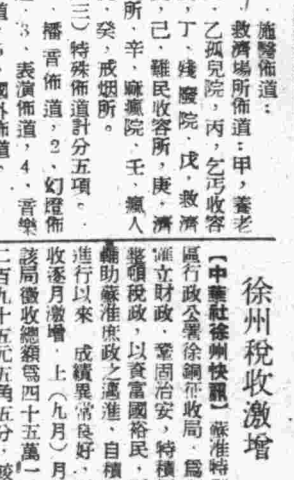 施醫佈道：
救濟場所佈道：甲，養老
乙孤兒院，丙，乞丐收容
丁，殘廢院，戊，救濟
己，難民收容所，庚，濟
所，辛，痲瘋院，壬，瘋人
癸，戒烟所。
三）特殊佈道計分五項。
播音佈道，2，幻燈佈
3，表演佈道，4，音樂
國外佈道。
徐州稅收激增
【中華社徐州快訊】蘇淮特
區行政公署徐銅征收局，爲
立財政，鞏固治安，特積
整頓稅政，以資富國裕民，
輔助蘇淮庶政之邁進，自積
進行以來，成績異常良好，
收逐月激增，上（九月）月
該局徵收總額爲四十五萬一
二百九十五元五角五分，較